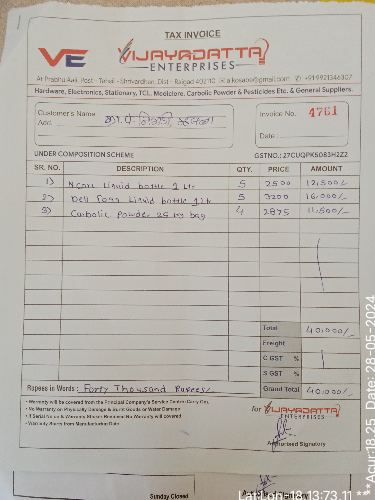 TAX INVOICE
VE
VIJAYADATTA
ENTERPRISES
At Prabhu Aali, Post - Tehsil - Shrivardhan, Dist - Raigad 402110
+91 9921346307
Hardware, Electronics, Stationary, TCL, Mediclore, Carbolic Powder & Pesticides Etc. & General Suppliers.
Customer's Name
Add.
Invoice No. 4761
Date
UNDER COMPOSITION SCHEME
GSTNO.: 27CUQPK5083H2Z2
SR. NO. DESCRIPTION QTY. PRICE AMOUNT
1) Liquid bottle 1 Ltr 5 2500 12,500/-
2) Liquid bottle 1 Ltr 5 3200 16,000/-
3) Carbolic Powder 25 kg bag 4 2875 11,500/-
Total 40,000/-
Freight
C GST %
S GST %
Rupees in Words : Forty Thousand Rupees/-
Grand Total 40,000/-
• Warranty will be covered from the Principal Company's Service Centre Carry Only.
• No Warranty on Physically Damage & Burnt Goods or Water Damage
• If Serial No & Warranty Sticker Removed No Warranty will covered
• Warranty Starts from Manufacturing Date
for VIJAYADATTA
ENTERPRISES
Authorised Signatory
Sunday Closed
***Acur:18.25 Date: 28-05-2024